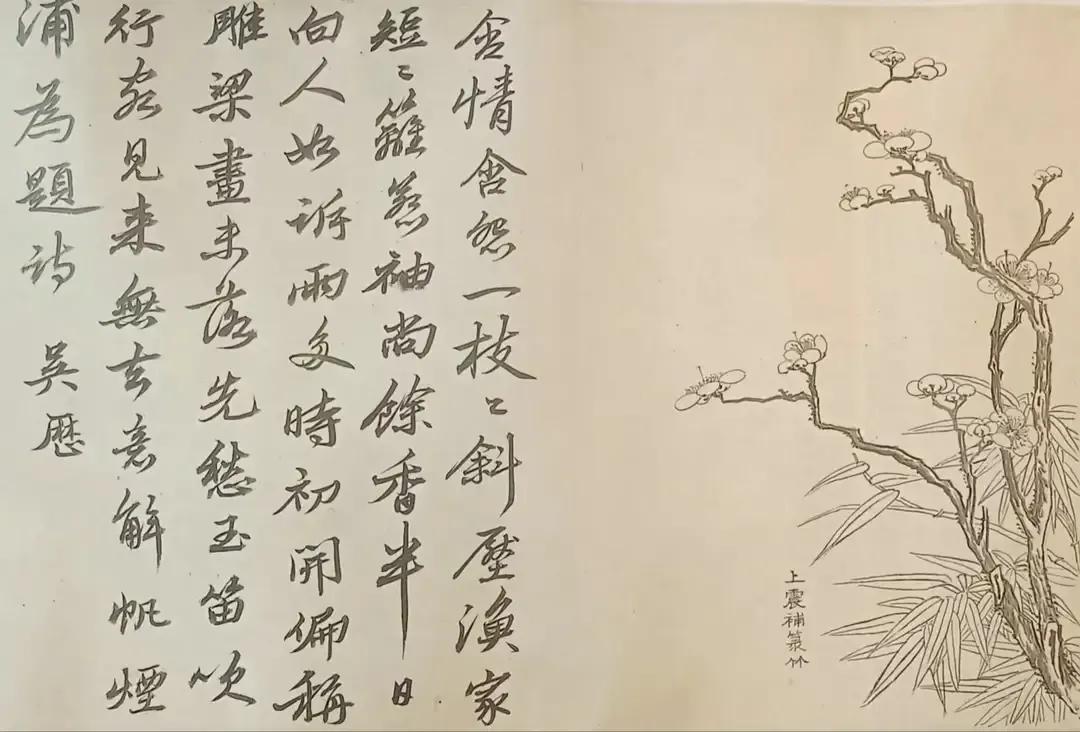 上震補竹
含情含怨一枝〻斜壓漁家
短〻籬惹袖尚餘香半日
向人如訴雨多時初開偏稱
雕梁畫未落先愁玉笛吹
行客見来無去意解帆煙
浦為題詩 吳歷